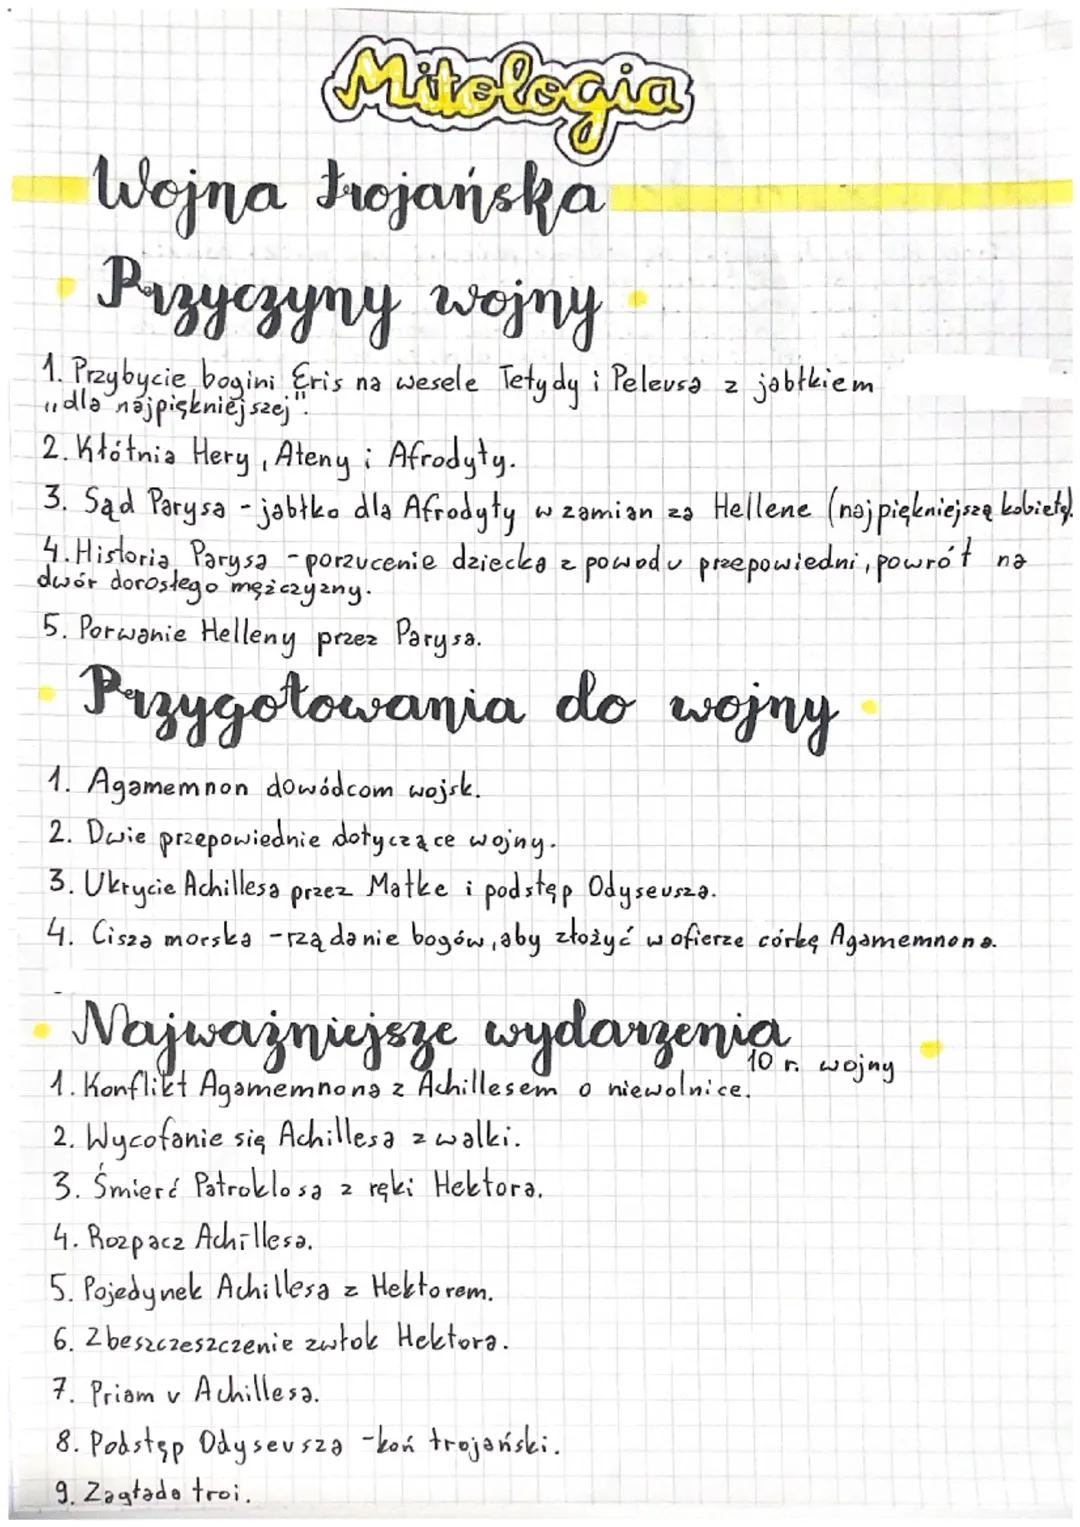 Mitologia
Wojna trojańska
Przyczyny wojny
1. Przybycie bogini Eris na wesele Tetydy i Peleusa z jabłkiem
„dla najpiękniejszej".
2. Kłótnia Hery, Ateny i Afrodyty.
3. Sąd Parysa - jabłko dla Afrodyty w zamian za Hellene (najpiękniejszą kobietę).
4. Historia Parysa - porzucenie dziecka z powodu przepowiedni, powrót na
dwór dorosłego mężczyzny.
5. Porwanie Helleny przez Parysa.
Przygotowania do wojny
1. Agamemnon dowódcom wojsk.
2. Dwie przepowiednie dotyczące wojny.
3. Ukrycie Achillesa przez Matke i podstęp Odyseusza.
4. Cisza morska - rządanie bogów, aby złożyć w ofierze córkę Agamemnona.
Najważniejsze wydarzenia
10 r. wojny
1. Konflikt Agamemnona z Achillesem o niewolnice.
2. Wycofanie się Achillesa z walki.
3. Śmierć Patroklosa z ręki Hektora.
4. Rozpacz Achillesa.
5. Pojedynek Achillesa z Hektorem.
6. Zbeszczeszczenie zwłok Hektora.
7. Priam u Achillesa.
8. Podstęp Odyseusza - koń trojański.
9. Zagłada troi.